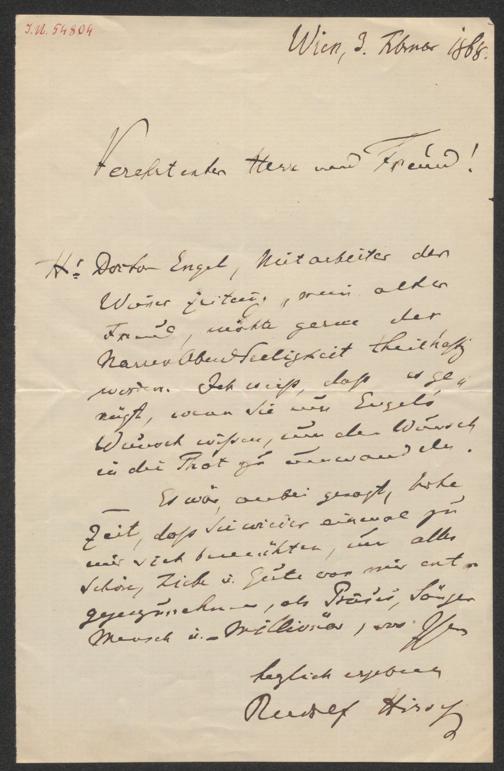 I.N. 54804
Wien, 3. Februar 1868.
Verehrtester Herr und Freund!
Hr Doctor Engel, Mitarbeiter der
Wiener Zeitung, mein alter
Freund, möchte gerne der
Narren Abend Seeligkeit theilhaftig
werden. Ich weiß, daß es ge¬
nügt, wenn Sie nur Engels
Wunsch wissen, um den Wunsch
in die That zu umwandeln.
Es wäre, anbei gesagt, hohe
Zeit, daß Sie wieder einmal zu
mir sich bemühten, um alles
Schöne, Liebe u. Gute von mir ent¬
gegenzunehmen, als Präses, Sänger
Mensch u. – Millionär, von Ihrem
herzlich ergebenen
Rudolf Hirsch